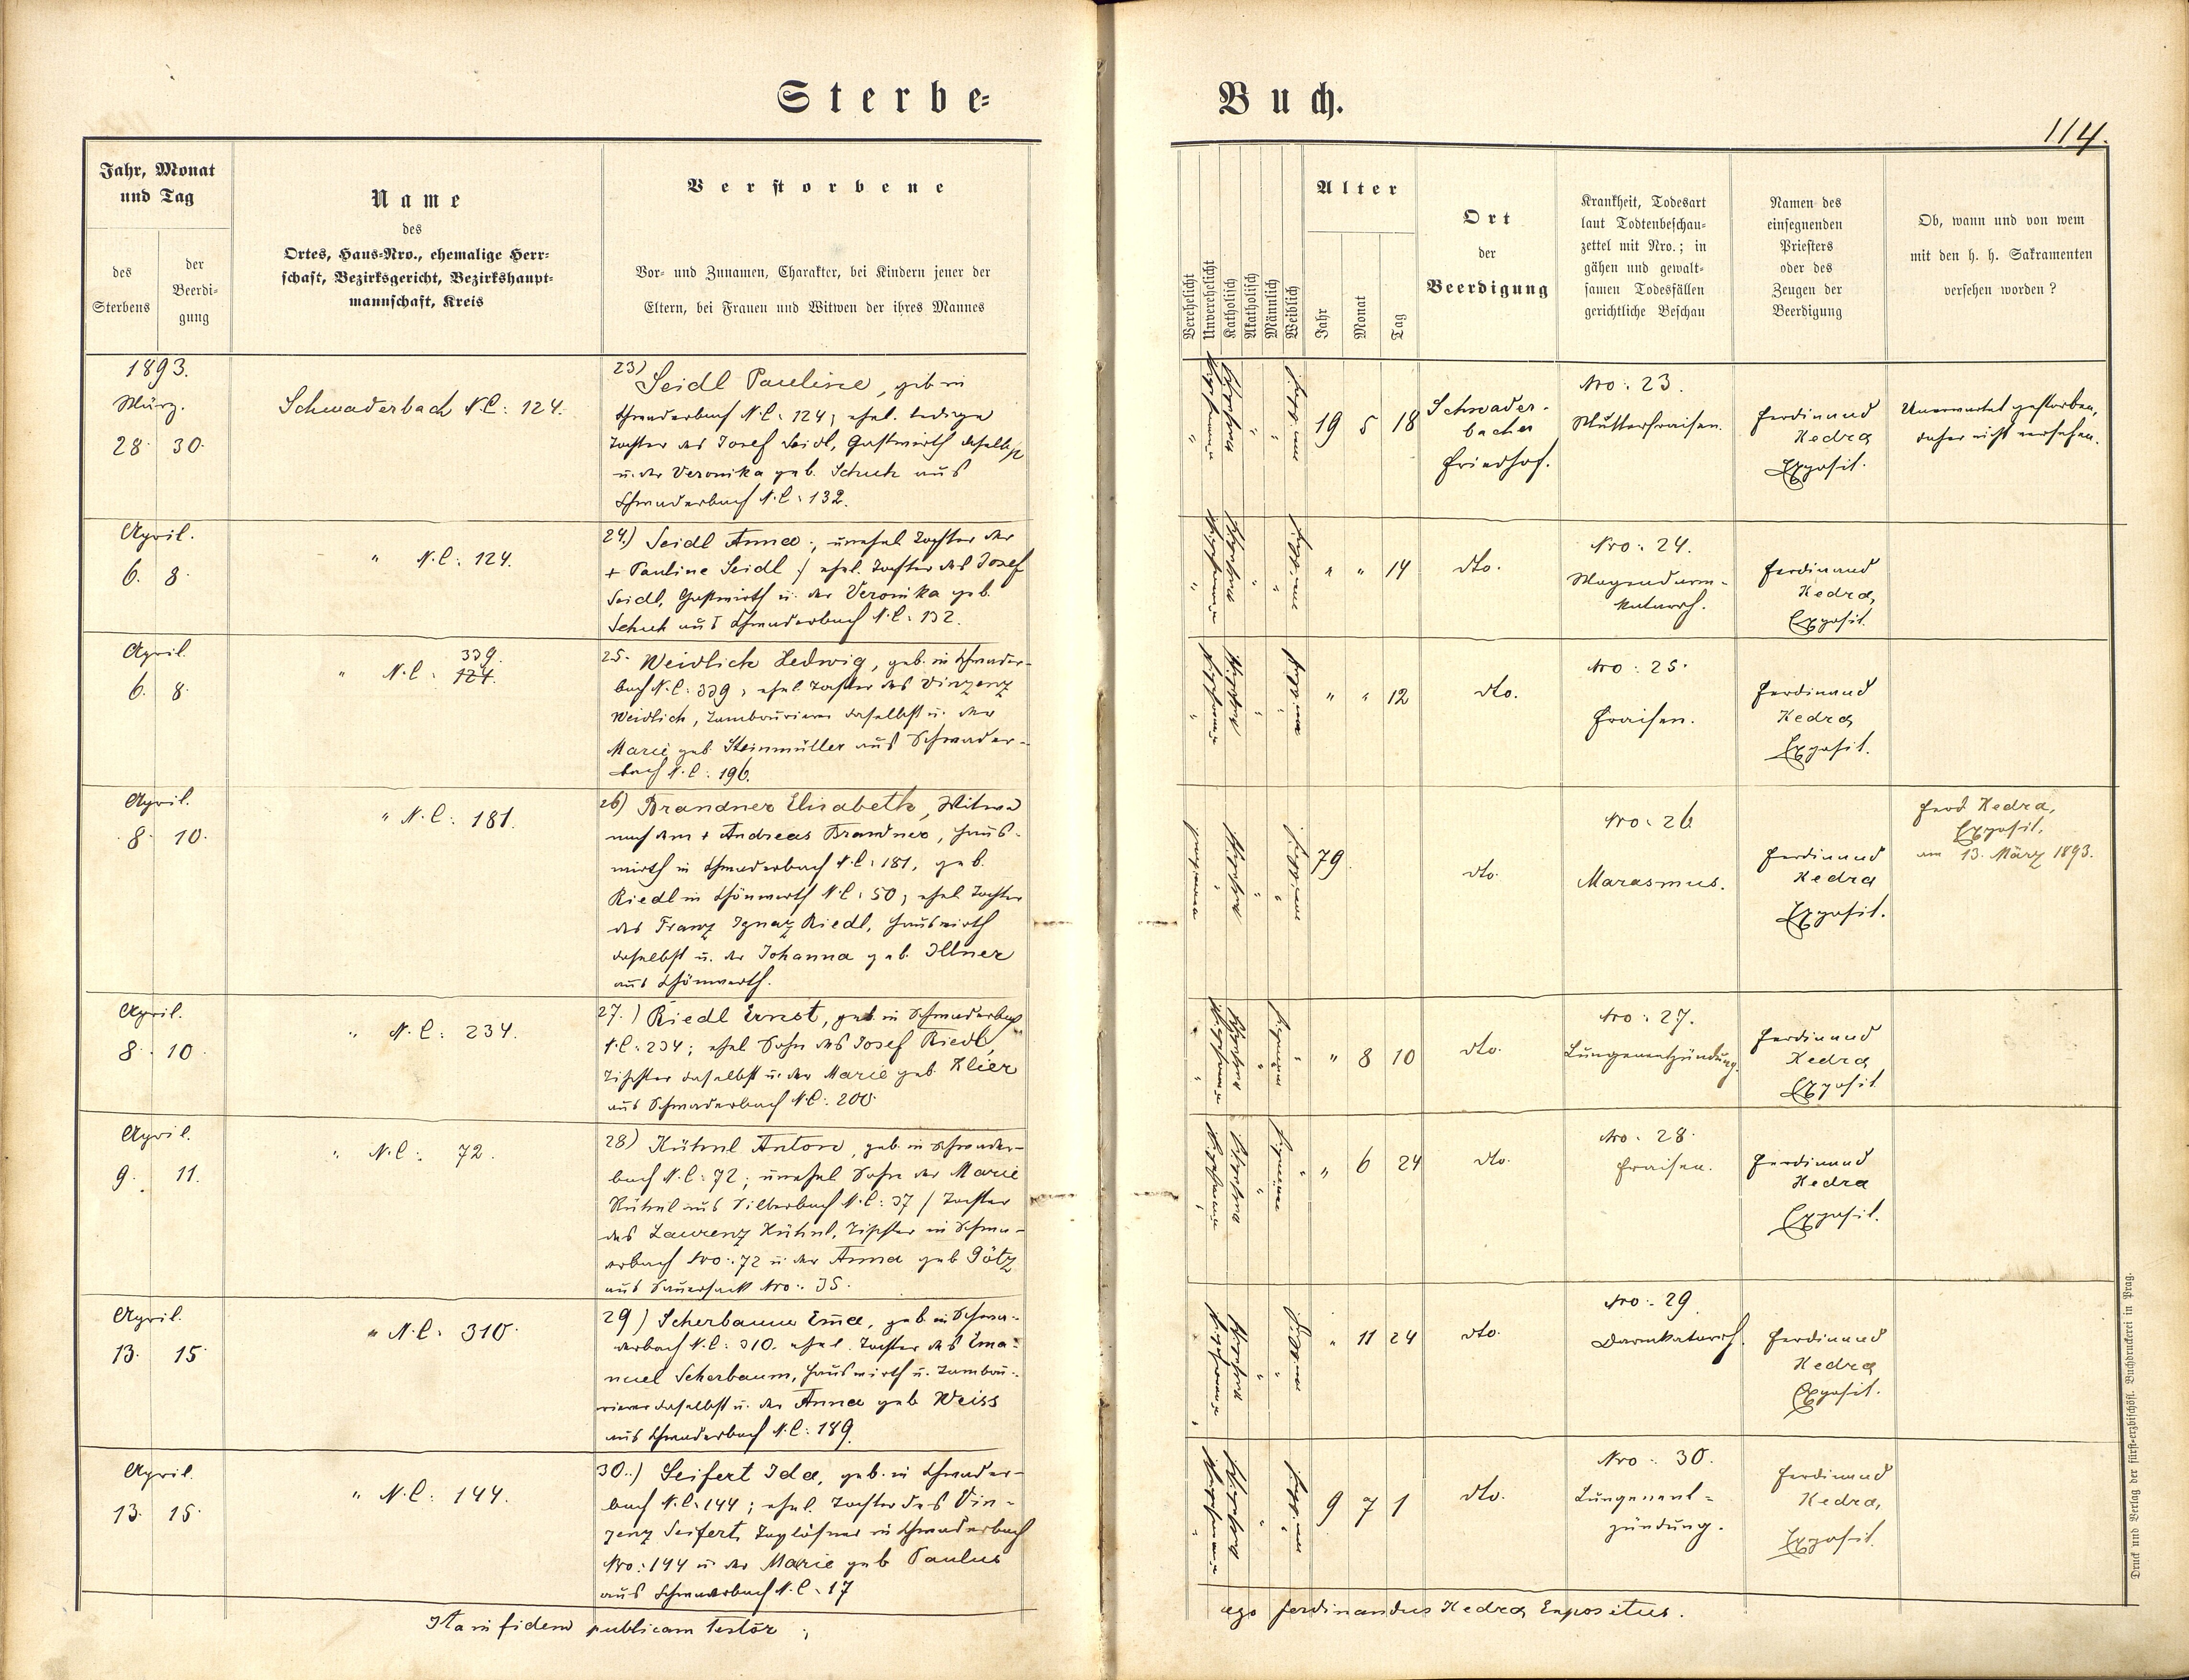 Sterbe-
Buch.
114.
Jahr, Monat
und Tag
des
Sterbens
der
Beerdi-
gung
Name
des
Ortes, Haus-Nro., ehemalige Herr-
schaft, Bezirksgericht, Bezirkshaupt-
mannschaft, Kreis
Verstorbene
Vor- und Zunamen, Charakter, bei Kindern jener der
Eltern, bei Frauen und Witwen der ihres Mannes
Verehelicht
Unverehelicht
Katholisch
Akatholisch
Männlich
Weiblich
Alter
Jahr
Monat
Tag
Ort
der
Beerdigung
Krankheit, Todesart
laut Todtenbeschau-
zettel mit Nro.; in
gähen und gewalt-
samen Todesfällen
gerichtliche Beschau
Namen des
einsegnenden
Priesters
oder des
Zeugen der
Beerdigung
Ob, wann und von wem
mit den h. h. Sakramenten
versehen worden?
1893.
März.
28. 30.
Schwaderbach N.C: 124.
23) Seidl Pauline, geb. in
Schwaderbach N.C: 124; ehel. ledige
Tochter des Josef Seidl, Gastwirth daselbst
u. der Veronika geb. Schuh aus
Schwaderbach N.C: 132.
19 5 18
Schwader-
bacher
Friedhof.
Nro: 23.
Mutterfraisen.
Ferdinand
Kedra
Exposit.
Unerwartet gestorben,
daher nicht versehen.
April.
6. 8.
" N.C: 124.
24.) Seidl Anna, unehel Tochter der
+ Pauline Seidl / ehel. Tochter des Josef
Seidl, Gastwirth u. der Veronika geb.
Schuh aus Schwaderbach N.C: 132.
" " 14
dto.
Nro: 24.
Magendarm-
katarrh.
Ferdinand
Kedra,
Exposit.
April.
6. 8.
339.
" N.C: 124.
25. Weidlich Hedwig, geb. in Schwader-
bach N.C: 339; ehel. Tochter des Vinzenz
Weidlich, Tambourierer daselbst u. der
Marie geb. Steinmüller aus Schwader-
bach N.C: 196.
" " 12
dto.
Nro: 25.
Fraisen.
Ferdinand
Kedra
Exposit.
April.
8. 10.
" N.C: 181.
26) Brandner Elisabeth, Witwe
nach dem + Andreas Brandner, Haus-
wirth in Schwaderbach N.C: 181, geb.
Riedl in Schönwerth N.C: 50; ehel Tochter
des Franz Ignaz Riedl, Hauswirth
daselbst u. der Johanna geb. Illner
aus Schönwerth.
79.
dto.
Nro: 26
Marasmus.
Ferdinand
Kedra
Exposit.
Ferd Kedra,
Exposit,
am 13. März 1893.
April.
8. 10.
" N.C: 234.
27.) Riedl Ernst, geb. in Schwaderbach
N.C: 234; ehel Sohn des Josef Riedl,
Tischler daselbst u. der Marie geb. Klier
aus Schwaderbach N.C: 200.
" 8 10
dto.
Nro: 27.
Lungenentzündung.
Ferdinand
Kedra
Exposit
April.
9. 11.
" N.C: 72.
28) Kühnl Anton, geb. in Schwader-
bach N.C: 72; unehel Sohn der Marie
Kühnl aus Silberbach N.C: 37 / Tochter
des Laurenz Kühnl, Tischler in Schwa-
derbach Nro: 72 u. der Anna geb Götz
aus Sauersack Nro: 35.
" 6 24
dto.
Nro: 28.
Fraisen.
Ferdinand
Kedra
Exposit.
April.
13. 15.
" N.C: 310.
29) Scherbaum Em̄a, geb. in Schwa-
derbach N.C: 310. ehel. Tochter des Ema-
nuel Scherbaum, Hauswirth u. Tambou-
rierer daselbst u. der Anna geb Weiss
aus Schwaderbach N.C: 189.
" 11 24
dto.
Nro: 29.
Darmkatarrh.
Ferdinand
Kedra
Exposit.
April.
13. 15.
" N.C: 144.
30.) Seifert Ida, geb. in Schwader-
bach N.C: 144; ehel. Tochter des Vin-
zenz Seifert, Taglöhner in Schwaderbach
Nro: 144 u. der Marie geb Paulus
aus Schwaderbach N.C: 17
9 7 1
dto.
Nro: 30.
Lungenent-
zündung.
Ferdinand
Kedra,
Exposit.
Ita in fidem publicam testor;
ego Ferdinandus Kedra Expositus.
Druck und Verlag der fürst-erzbischöfl. Buchdruckerei in Prag.